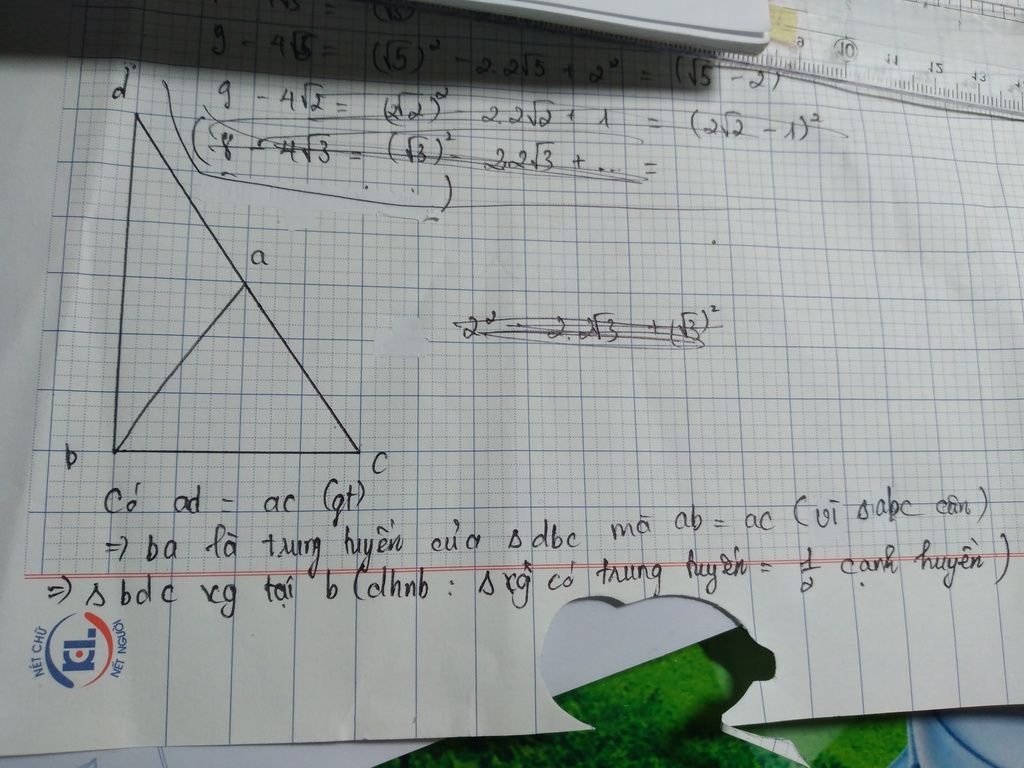 9 - 4√5 = (√5)² - 2.2√5 + 2² = (√5 - 2)
9 - 4√2 = (2√2)² - 2.2√2 + 1 = (2√2 - 1)²
(8 - 4√3 = (√3)² - 2.2√3 + ... =
)
d
a
2² - 2.2√3 + (√3)²
b
c
Có ad = ac (gt)
=> ba là trung tuyến của s dbc mà ab = ac (vì s abc cân)
=> s bdc vg tại b (dhnb : s vg có trung tuyến = 1/2 cạnh huyền)
NÉT CHỮ
NÉT NGƯỜI
9 10 11 12 13